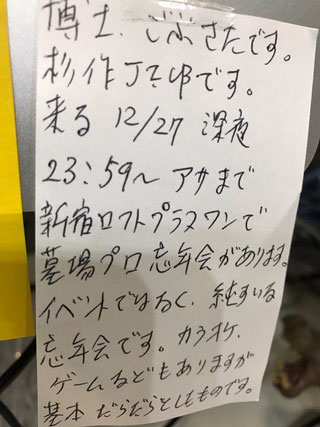 博士、ごぶさたです。
杉作J太郎です。
来る 12/27 深夜
23:59〜 アサまで
新宿ロフトプラスワンで
墓場プロ忘年会があります。
イベントではなく、純すいる
忘年会です。カラオケ、
ゲームなどもありますが
基本 だらだらとしたものです。